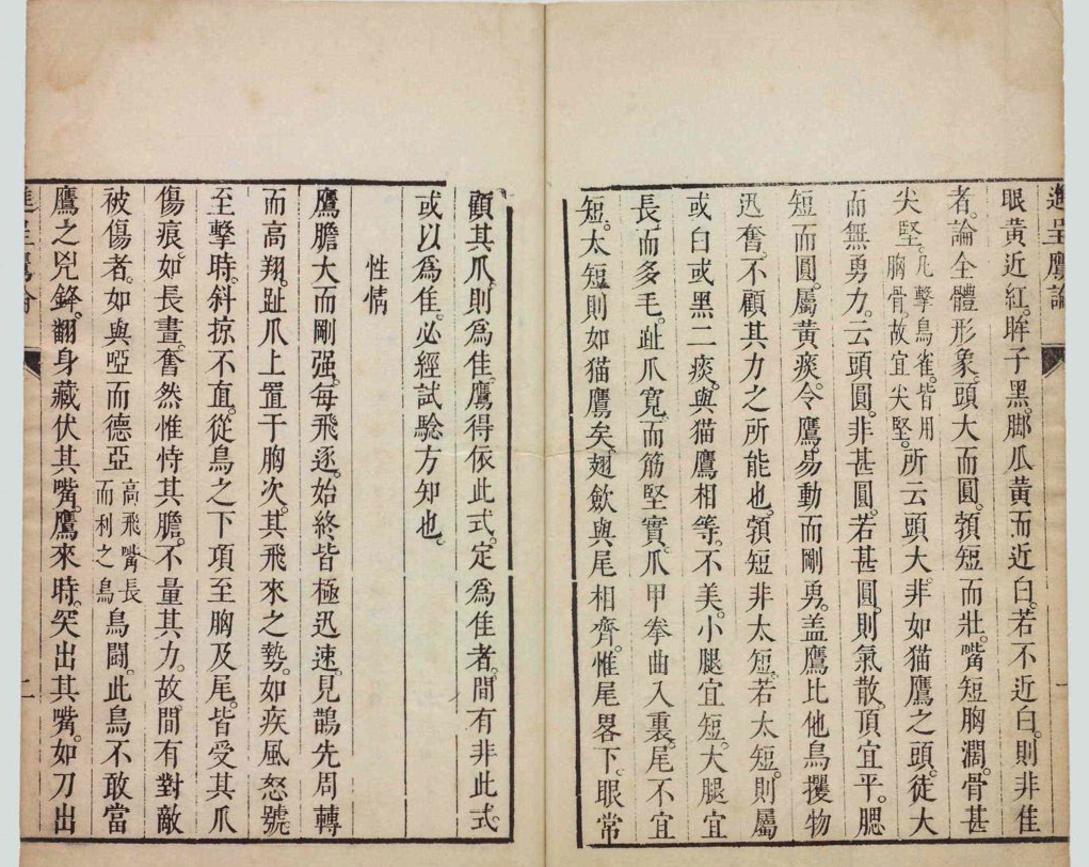 進呈鷹論
眼黃近紅。眸子黑。脚瓜黃而近白。若不近白。則非佳
者。論全體形象。頭大而圓。頷短而壯。嘴短胸濶。骨甚
尖堅。凡擊鳥雀。皆用胸骨。故宜尖堅。所云頭大。非如猫鷹之頭。徒大
而無勇力。云頭圓。非甚圓。若甚圓。則氣散。頂宜平。腮
短而圓。屬黃痰。令鷹易動而剛勇。盖鷹比他鳥攫物
迅奮。不顧其力之所能也。頷短非太短。若太短。則屬
或白或黑二痰。與猫鷹相等。不美。小腿宜短。大腿宜
長。而多毛。趾爪寬。而筋堅實。爪甲拳曲入裏。尾不宜
短。太短則如猫鷹矣。翅歛與尾相齊。惟尾畧下。眼常
顧其爪。則為佳。鷹得依此式。定為佳者。間有非此式
或以為隹。必經試騐方知也。
性情
鷹膽大而剛强。每飛逐。始終皆極迅速。見鵲先周轉
而高翔。趾爪上置于胸次。其飛來之勢。如疾風怒號。
至擊時。斜掠不直。從鳥之下項至胸及尾。皆受其爪
傷痕。如長畫。奮然惟恃其膽。不量其力。故間有對敵
被傷者。如與啞而德亞高飛嘴長而利之鳥鳥鬪。此鳥不敢當
鷹之兇鋒。翻身藏伏其嘴。鷹來時。突出其嘴。如刀出